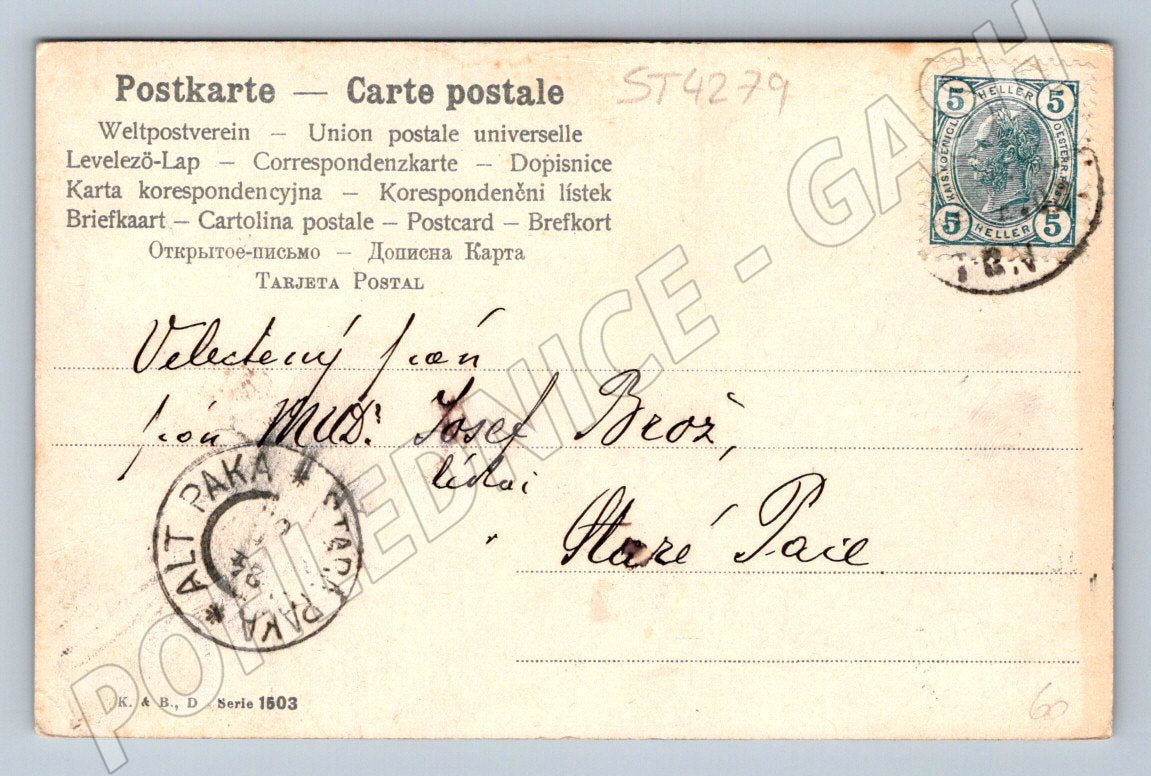 Postkarte — Carte postale
ST4279
Weltpostverein — Union postale universelle
Levelezö-Lap — Correspondenzkarte — Dopisnice
Karta korespondencyjna — Korespondenčni lístek
Briefkaart — Cartolina postale — Postcard — Brefkort
Открытое-письмо — Дописна Карта
TARJETA POSTAL
5 HELLER 5
KAIS. KOENIGL. OESTERR. POST
5 HELLER 5
Velectený pán
pán MUDr. Josef Brož,
lékař
Staré Pace
* ALT PAKA * STARA PAKA
K. & B., D. Serie 1503
60
POHLEDNICE - GACH